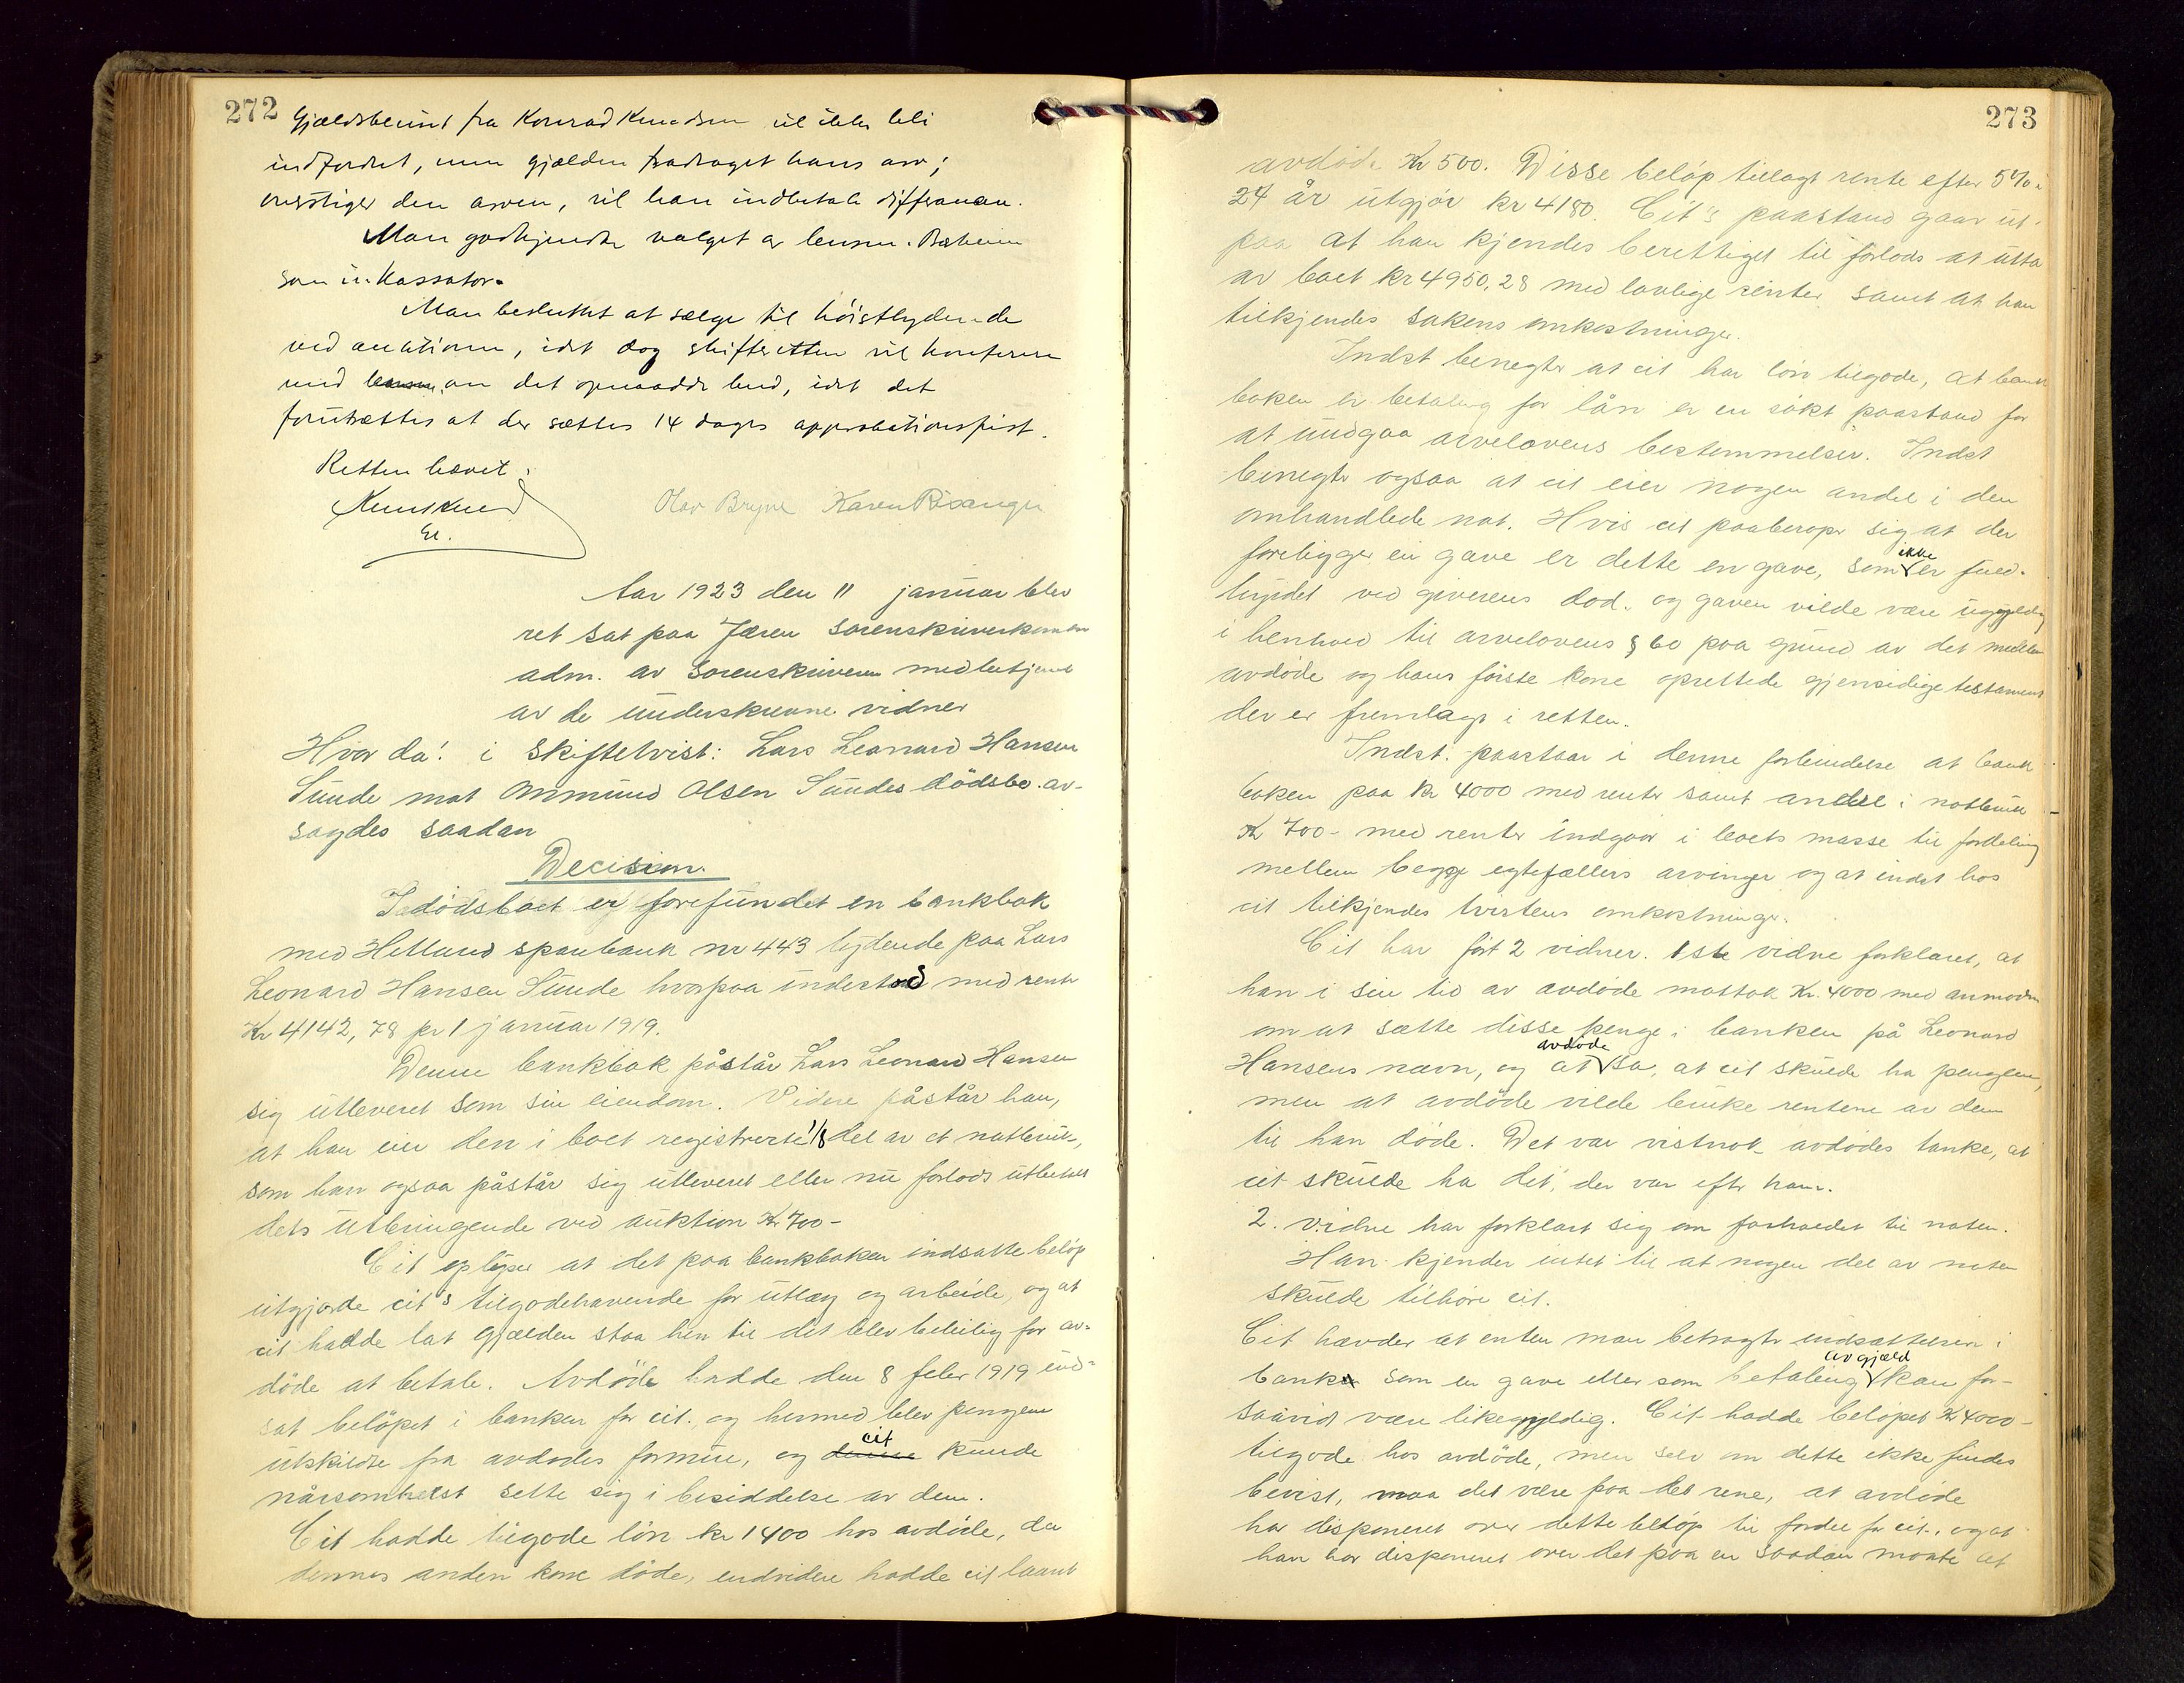 272
Gjældsbeviset fra Konrad Knudsen vil ikke bli
indfordret, men gjælden fradraget hans arv;
overstiger den arven, vil han indbetale differansen.
Man godkjendte valget av lensm. 
som inkassator.
Man besluttet at sælge til høistbydende
ved auktionen, idet dog skifteretten vil konferere
med om det opnaadde bud, idet det
forutsættes at der sættes 14 dages approbationsfrist.
Retten hævet.
Olav Bryne Karen Risanger
Aar 1923 den 11 januar blev
ret sat paa Jæren sorenskriverkontor
adm. av sorenskriveren med betjent
av de underskrevne vidner
Hvor da: i Skiftetvist: Lars Leonard Hansen
Sunde mot Ommund Olsen Sundes dödsbo av-
sagdes saadan
Decision.
I dödsboet er forefundet en bankbok
med Hetland sparebank nr 443 lydende paa Lars
Leonard Hansen Sunde hvorpaa indestod med rente
Kr 4142,78 pr 1 januar 1919.
Denne bankbok påstår Lars Leonard Hansen
sig utleveret som sin eiendom. Videre påstår han,
at han eier den i boet registrerte 1/8 del av et notbruk,
som han ogsaa påstår sig utleveret eller nu forlods utbetalt
dets utbringende ved auktion Kr 700-
Cit oplyser at det paa bankboken indsatte beløp
utgjorde cit's tilgodehavende for utlæg og arbeide, og at
cit hadde lat gjælden staa hen til det blev beleilig for av-
döde at betale. Avdöde hadde den 8 febr 1919 ind-
sat belöpet i banken for cit. og hermed blev pengene
utskildt fra avdødes formue, og cit kunde
nårsomhelst sette sig i besiddelse av dem.
Cit hadde tilgode lön kr 1400 hos avdöde, da
dennes anden kone döde, endvidere hadde cit laant
273
avdöde Kr 500. Disse beløp tillagt rente efter 5% i
24 år utgjør kr 4180. Cit's paastand gaar ut
paa at han kjendes berettiget til forlods at utta
av boet kr 4950,28 med lovlige renter samt at han
tilkjendes sakens omkostninger.
Indst benegter at cit har lön tilgode, at bank
boken er betaling for lån er en søkt paastand for
at undgaa arvelovens bestemmelser. Indst
benegter ogsaa at cit eier nogen andel i den
omhandlede not. Hvis cit paaberoper sig at der
foreligger en gave er dette en gave, som ikke er fuld-
byrdet ved giverens död, og gaven vilde være ugyldig
i henhold til arvelovens § 60 paa grund av det mellem
avdöde og hans første kone oprettede gjensidige testament
der er fremlagt i retten.
Indst. paastaar i denne forbindelse at bank
boken paa Kr 4000 med renter samt andel i notbruk
Kr 700- med renter indgaar i boets masse til fordeling
mellem begge egtefællers arvinger og at indst hos
cit tilkjendes tvistens omkostninger.
Cit har ført 2 vidner. 1ste vidne forklaret, at
han i sin tid av avdöde mottok Kr. 4000 med anmodn
om at sætte disse penge i banken på Leonard
Hansens navn, og at avdöde sa, at cit skulde ha pengene,
men at avdöde vilde bruke rentene av dem
til han döde. Det var vistnok avdödes tanke, at
cit skulde ha det, der var efter ham.
2. vidne har forklart sig om forholdet til noten.
Han kjender intet til at nogen del av noten
skulde tilhøre cit.
Cit hævder at enten man betragter indsættelsen i
banken som en gave eller som betaling av gjæld kan for-
saavid være likegyldig. Cit hadde beløpet Kr 4000-
tilgode hos avdöde, men selv om dette ikke findes
bevist, maa det være paa det rene, at avdöde
har disponeret over dette beløp til fordel for cit., og at
han har disponeret over det paa en saadan maate at